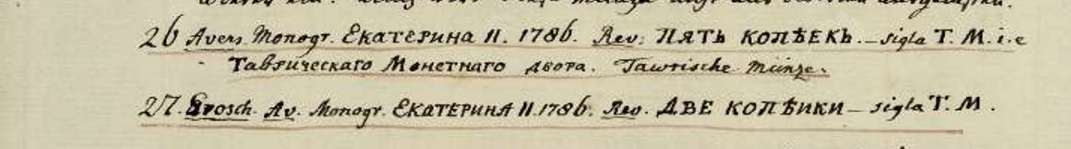 26 Avers. Monogr. ЕКАТЕРИНА II. 1786. Rev: ПЯТЬ КОПѢЕКЬ. — sigla Т. М. i. e
Таврическаго Монетнаго двора. Tawrische Münze.
27. Grosch. Av. Monogr. ЕКАТЕРИНА II. 1786. Rev. ДВЕ КОПѢИКИ — sigla Т. М.